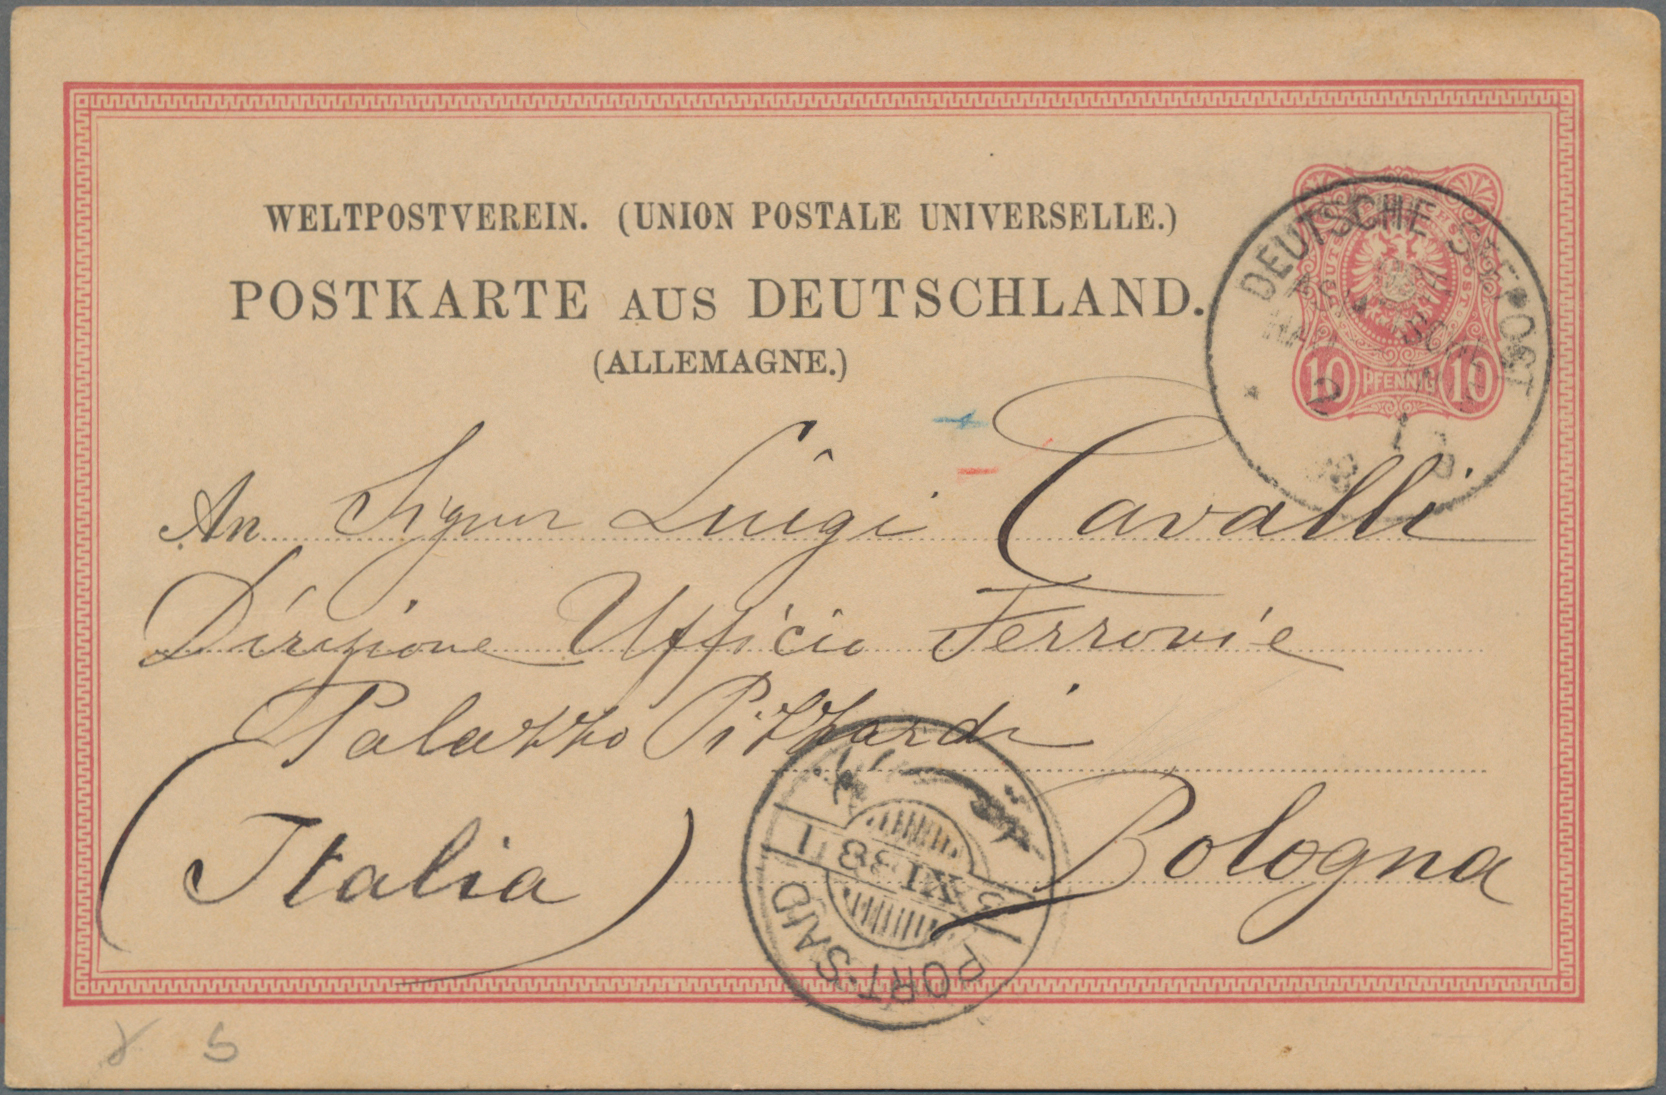 WELTPOSTVEREIN. (UNION POSTALE UNIVERSELLE.)
POSTKARTE AUS DEUTSCHLAND.
(ALLEMAGNE.)
DEUTSCHE SEEPOST
10 PFENNIG 10
An Signor Luigi Cavalli
Direzione Ufficio Ferrovie
Palazzo Pizzardi
(Italia) Bologna
3 XI 88 T1
PORT-SAID
5